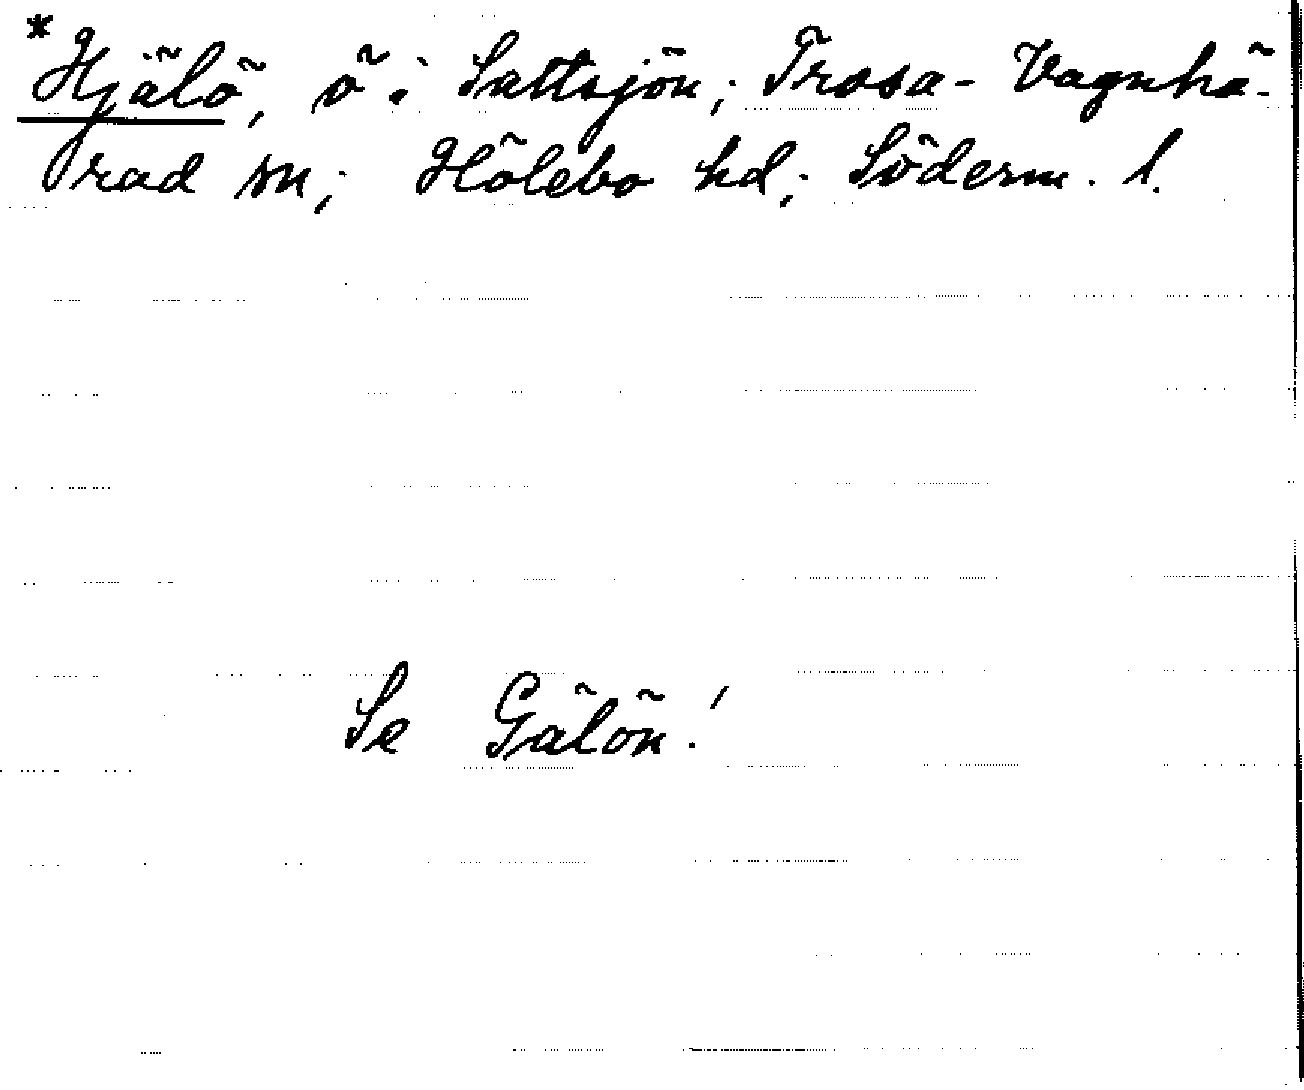 *Hjälö, ö i Saltsjön; Trosa-Vagnhä-
rad sn; Hölebo hd; Söderm. l.
Se Gälön!